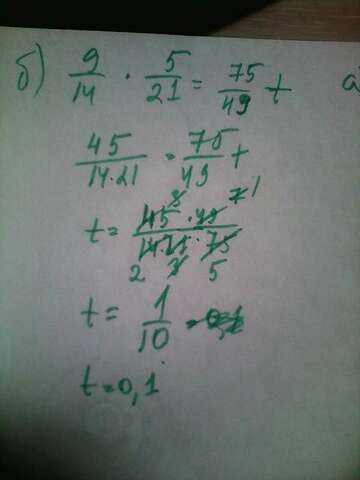 б) 9/14 · 5/21 = 75/49 t a
45/14·21 = 75/49 t
t = 45·49/14·21·75
2 3 5
t = 1/10
t = 0,1